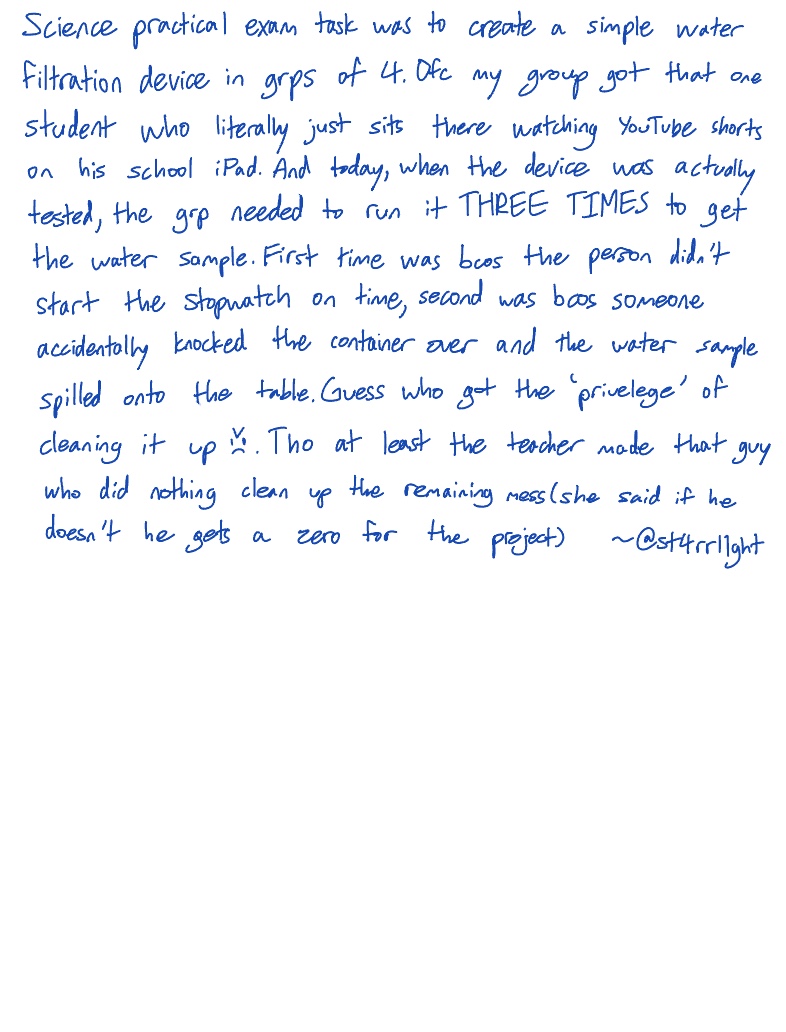 Science practical exam task was to create a simple water
filtration device in grps of 4. Ofc my group got that one
student who literally just sits there watching YouTube shorts
on his school iPad. And today, when the device was actually
tested, the grp needed to run it THREE TIMES to get
the water sample. First time was bcos the person didn't
start the stopwatch on time, second was bcos someone
accidentally knocked the container over and the water sample
spilled onto the table. Guess who got the 'privelege' of
cleaning it up. Tho at least the teacher made that guy
who did nothing clean up the remaining mess (she said if he
doesn't he gets a zero for the project) ~@st4rrl1ght